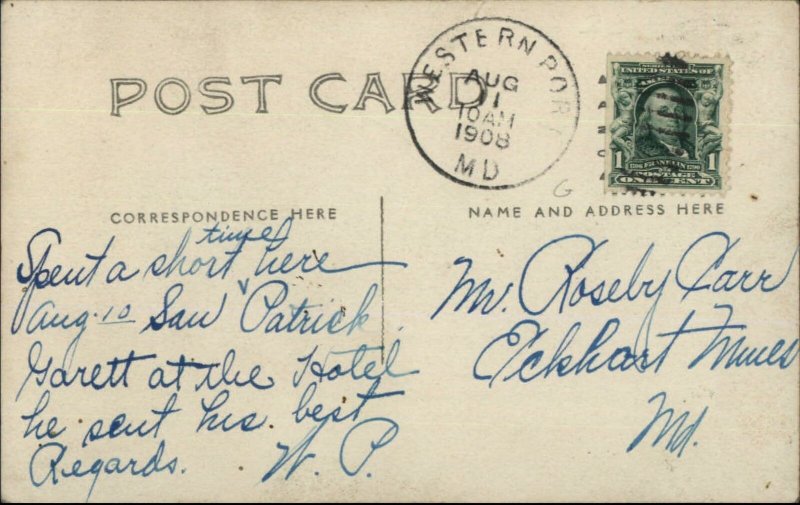 POST CARD
WESTERNPORT
AUG
11
10AM
1908
MD
UNITED STATES OF AMERICA
1 FRANKLIN 1
POSTAGE
ONE CENT
G
CORRESPONDENCE HERE
NAME AND ADDRESS HERE
time
Spent a short here
Aug. 10 Saw Patrick
Garett at the Hotel
he sent his best
Regards. W. P.
Mr. Roseby Carr
Eckhart Mines
Md.